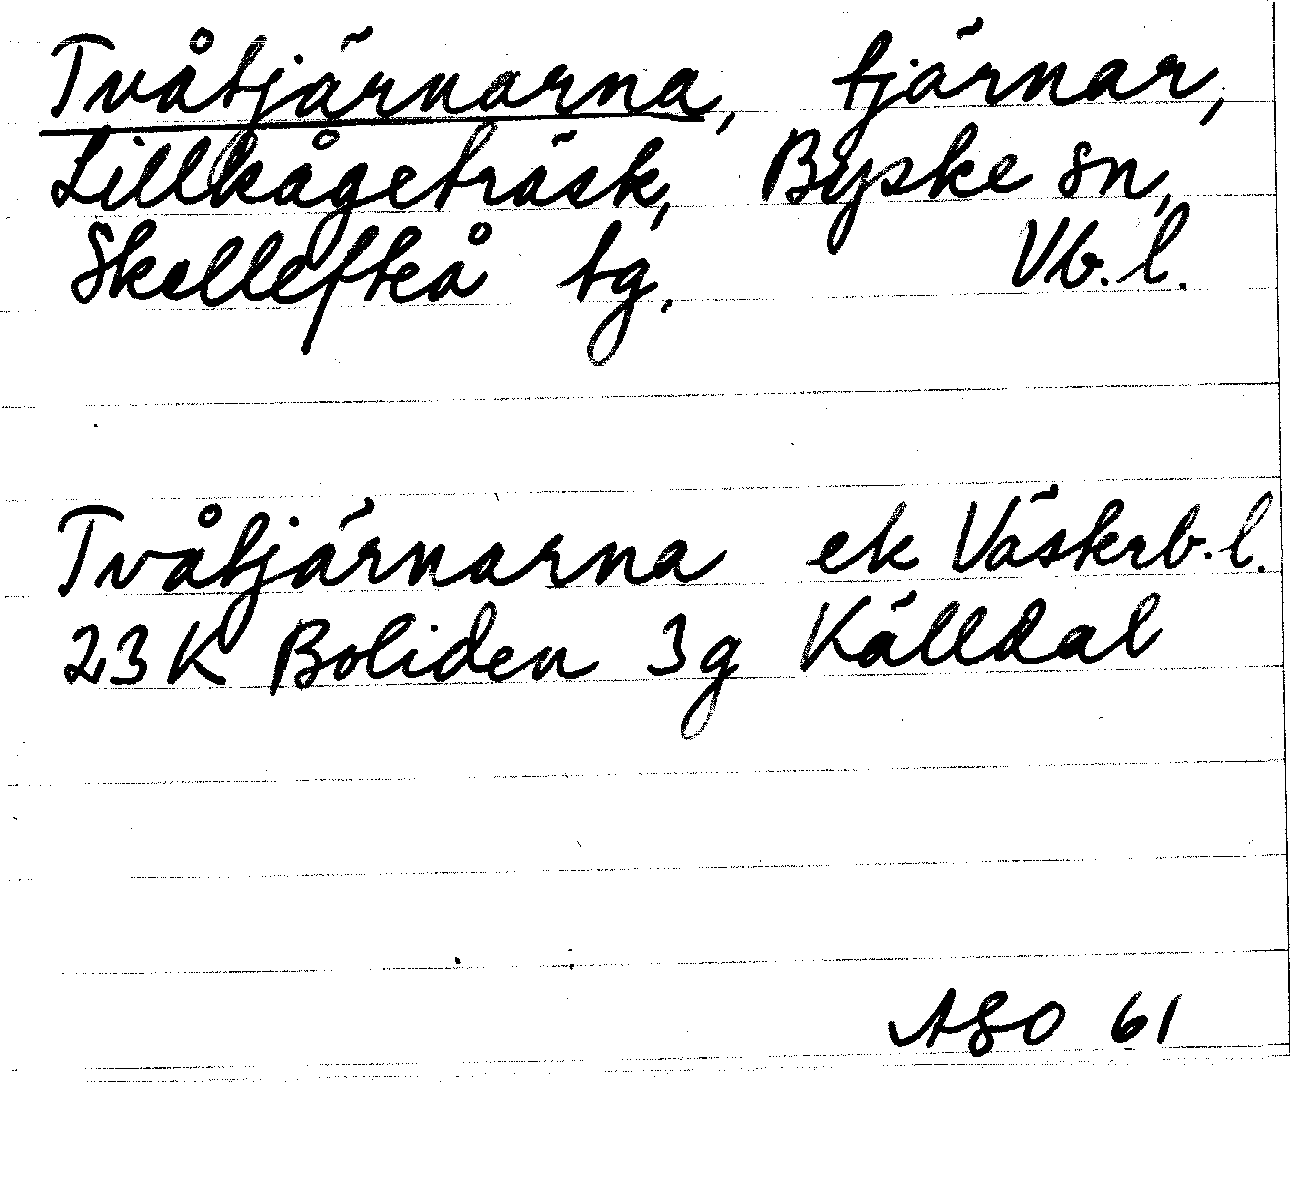 Tvåtjärnarna, tjärnar,
Lillkågeträsk, Byske sn,
Skellefteå tg. Vb. l.
Tvåtjärnarna ek Västerb. l.
23 K Boliden 3g Källdal
ASO 61